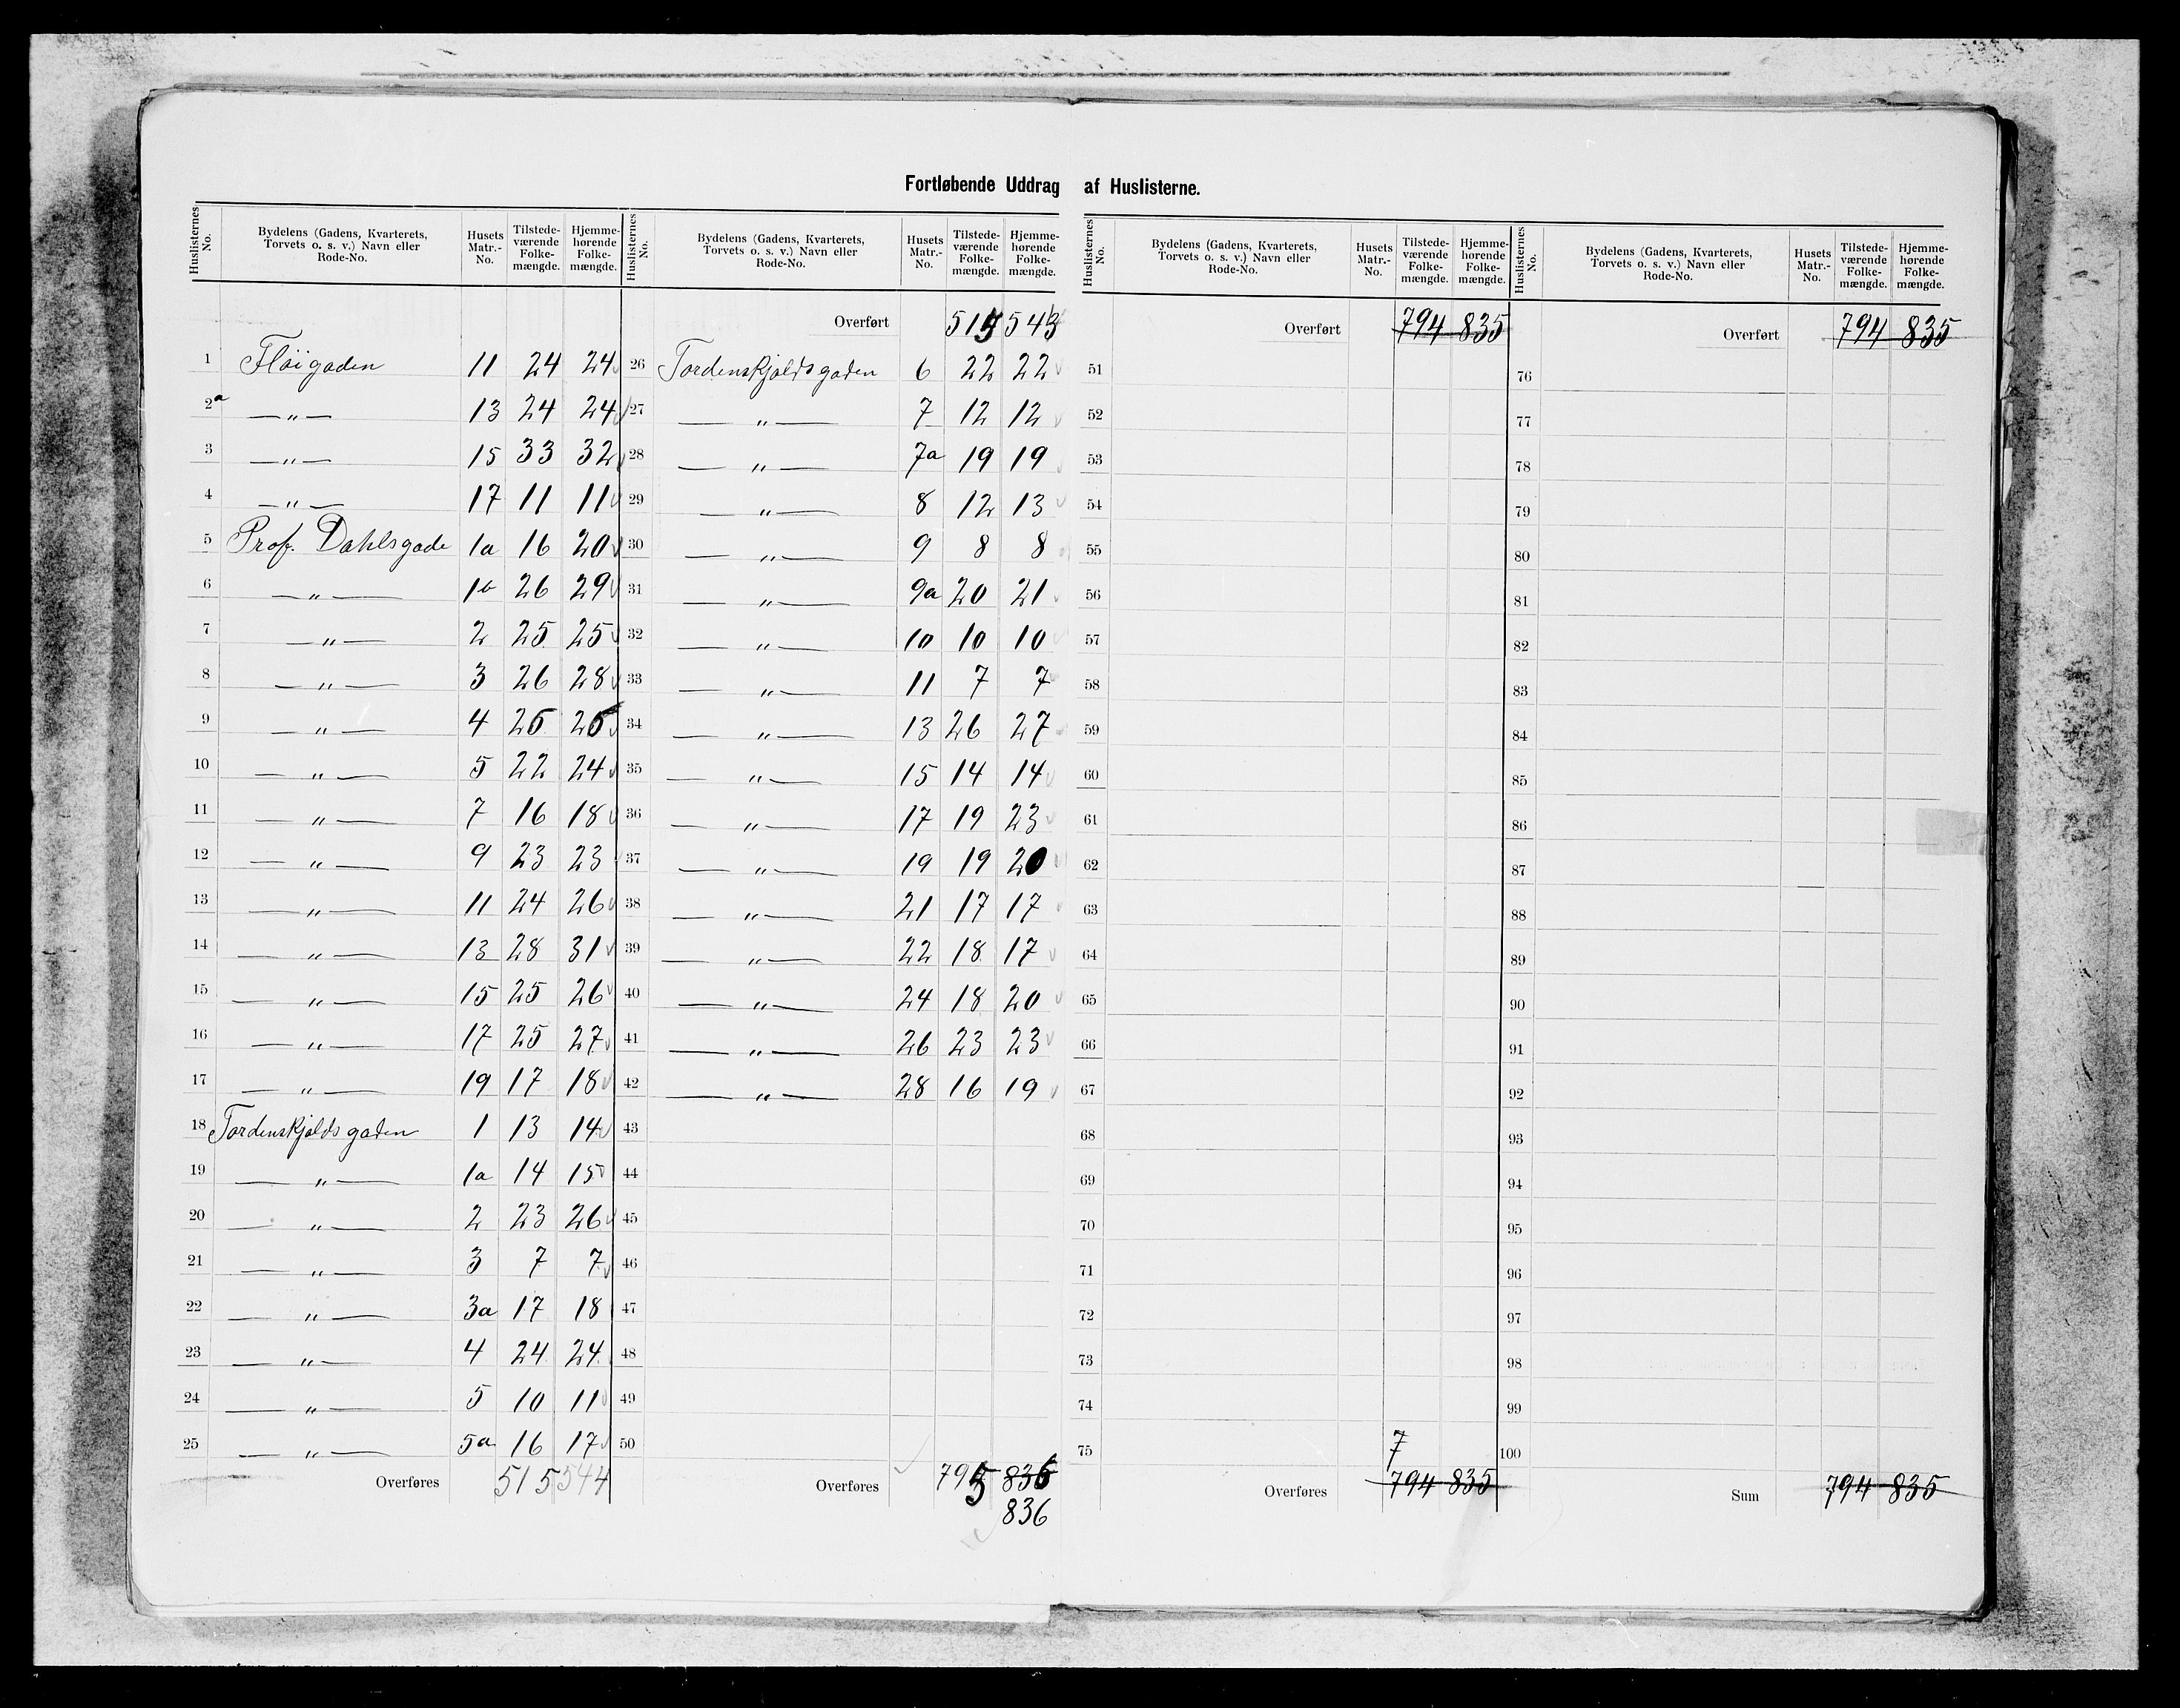 Fortløbende Uddrag af Huslisterne.
Huslisternes No. Bydelens (Gadens, Kvarterets, Torvets o. s. v.) Navn eller Rode-No. Husets Matr.-No. Tilstede-værende Folke-mængde. Hjemme-hørende Folke-mængde.
1 Fløigaden 11 24 24
2a —„— 13 24 24
3 —„— 15 33 32
4 —„— 17 11 11
5 Prof. Dahlsgade 1a 16 20
6 —„— 1b 26 29
7 —„— 2 25 25
8 —„— 3 26 28
9 —„— 4 26 26
10 —„— 5 22 24
11 —„— 7 16 18
12 —„— 9 23 23
13 —„— 11 24 26
14 —„— 13 28 31
15 —„— 15 25 26
16 —„— 17 25 27
17 —„— 19 17 18
18 Tordenskjolds gaden 1 13 14
19 —„— 1a 14 15
20 —„— 2 23 26
21 —„— 3 7 7
22 —„— 3a 17 18
23 —„— 4 24 24
24 —„— 5 10 11
25 —„— 5a 16 17
Overføres 515 544
Huslisternes No. Bydelens (Gadens, Kvarterets, Torvets o. s. v.) Navn eller Rode-No. Husets Matr.-No. Tilstede-værende Folke-mængde. Hjemme-hørende Folke-mængde.
Overført 515 543
26 Tordenskjolds gaden 6 22 22
27 —„— 7 12 12
28 —„— 7a 19 19
29 —„— 8 12 13
30 —„— 9 8 8
31 —„— 9a 20 21
32 —„— 10 10 10
33 —„— 11 7 7
34 —„— 13 26 27
35 —„— 15 14 14
36 —„— 17 19 23
37 —„— 19 19 20
38 —„— 21 17 17
39 —„— 22 18 17
40 —„— 24 18 20
41 —„— 26 23 23
42 —„— 28 16 19
43
44
45
46
47
48
49
50
Overføres 795 836
836
Huslisternes No. Bydelens (Gadens, Kvarterets, Torvets o. s. v.) Navn eller Rode-No. Husets Matr.-No. Tilstede-værende Folke-mængde. Hjemme-hørende Folke-mængde.
Overført 794 835
51
52
53
54
55
56
57
58
59
60
61
62
63
64
65
66
67
68
69
70
71
72
73
74
75 7
Overføres 794 835
Huslisternes No. Bydelens (Gadens, Kvarterets, Torvets o. s. v.) Navn eller Rode-No. Husets Matr.-No. Tilstede-værende Folke-mængde. Hjemme-hørende Folke-mængde.
Overført 794 835
76
77
78
79
80
81
82
83
84
85
86
87
88
89
90
91
92
93
94
95
96
97
98
99
100
Sum 794 835